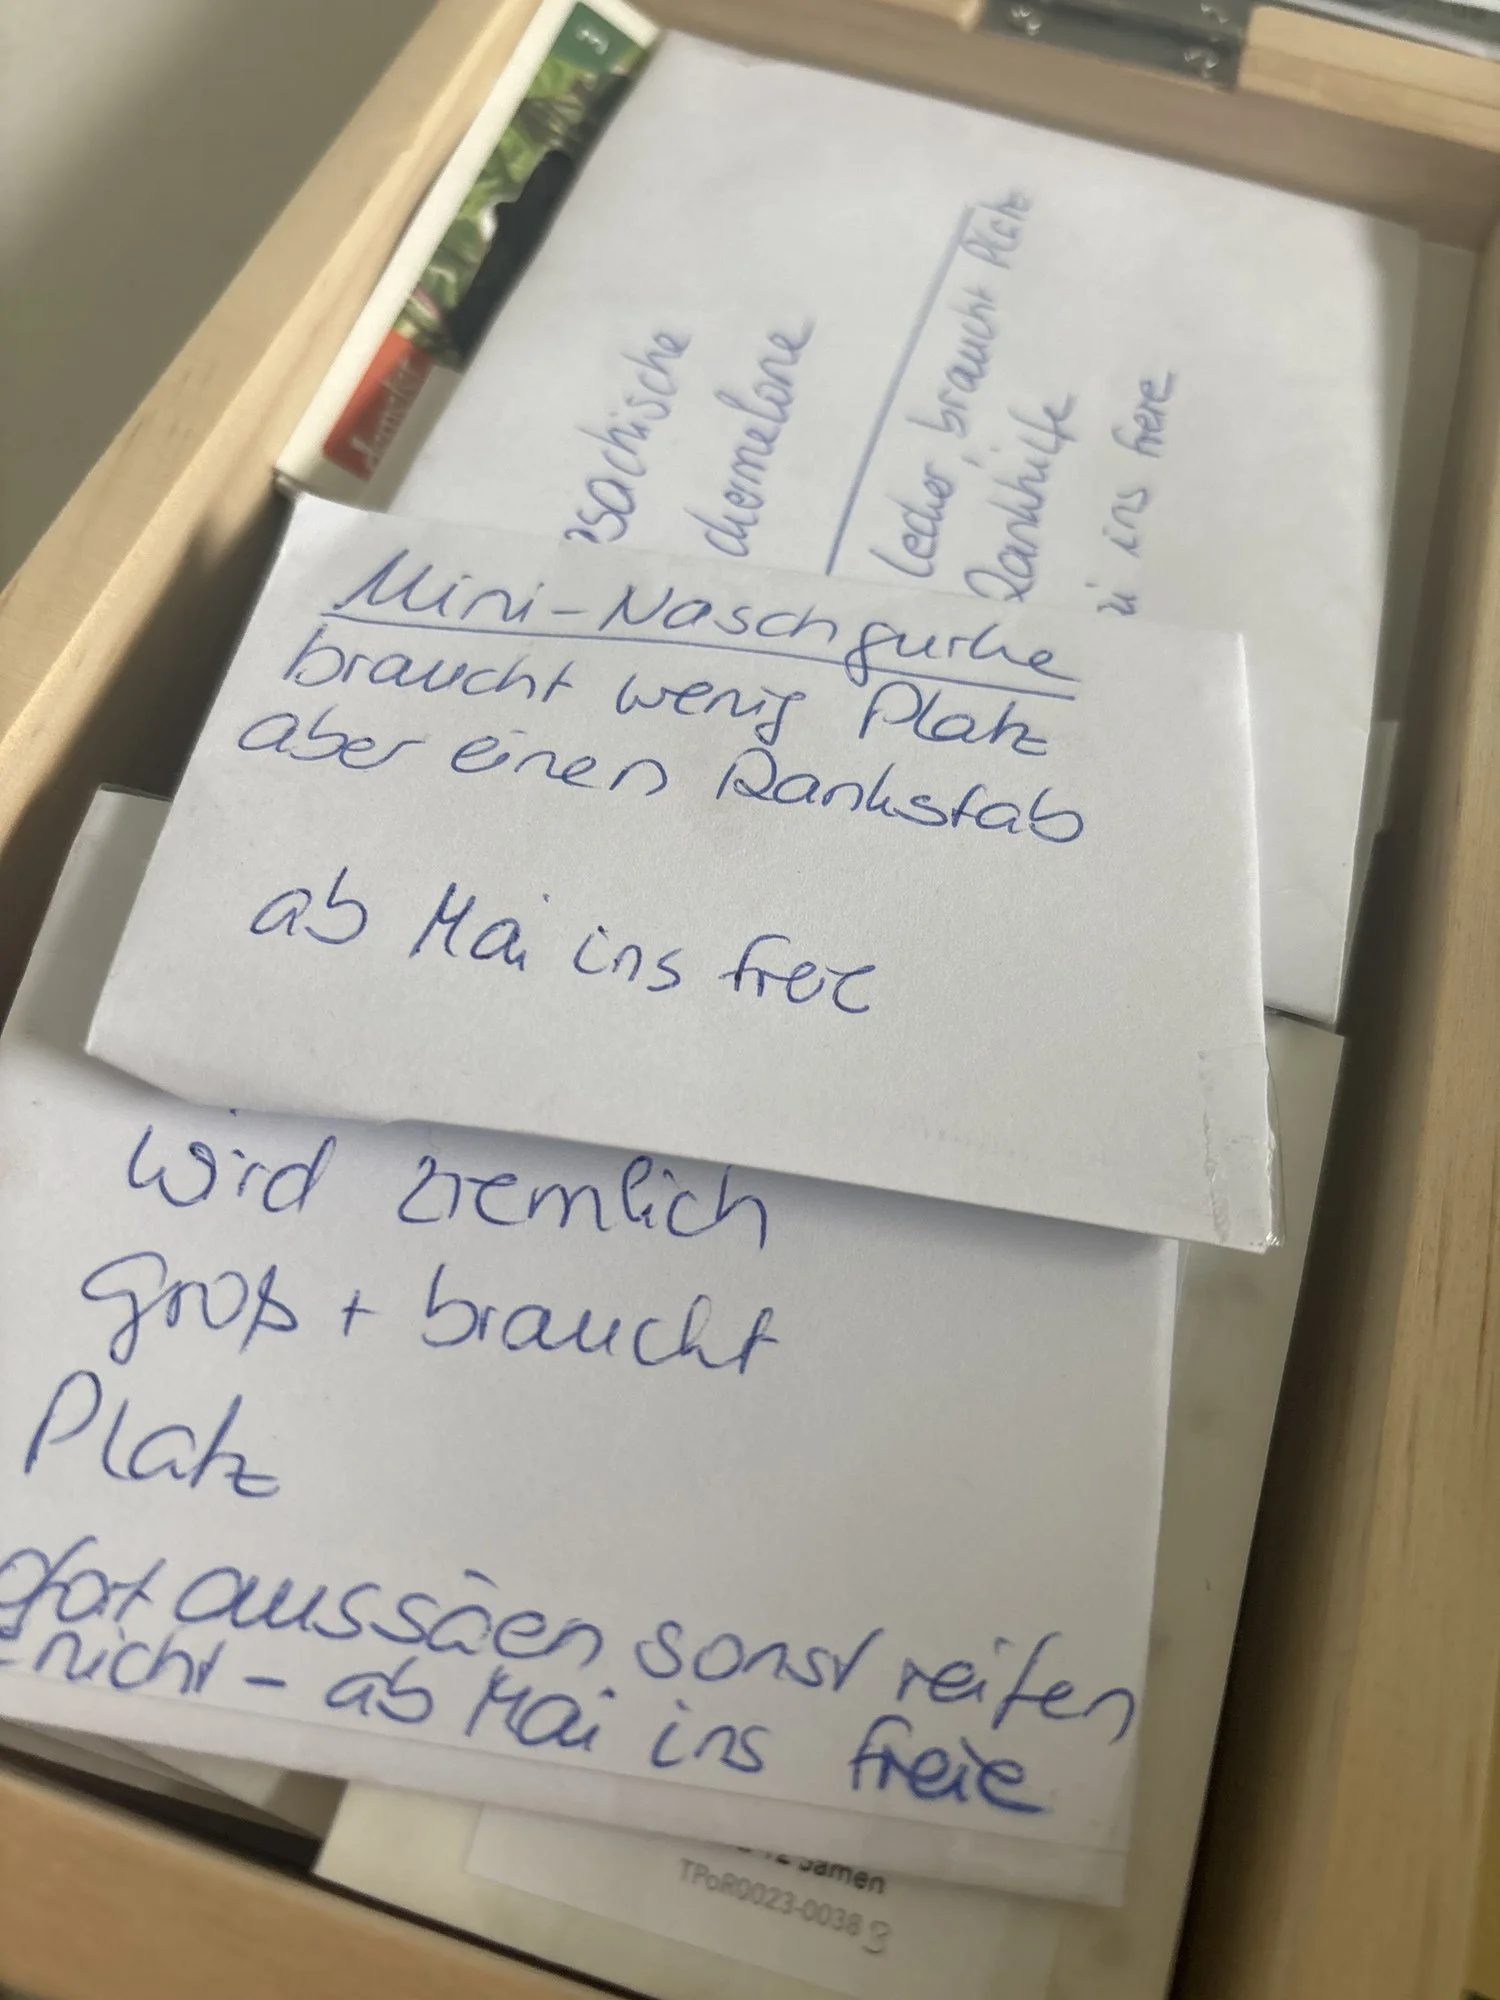 3
demeter
Lecker, braucht Platz
Rankhilfe
ins freie
Mini-Naschgurke
braucht wenig Platz
aber einen Rankstab
ab Mai ins freie
wird ziemlich
groß + braucht
Platz
aussäen sonst reifen
nicht - ab Mai ins freie
12 Samen
TPoR0023-0038 3